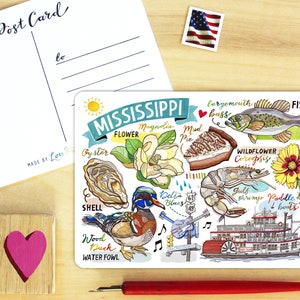 Post Card
to
MADE BY
MISSISSIPPI
FLOWER
Magnolia
Mud
Pie
Largemouth
bass
FI
Oyster
SHELL
WILDFLOWER
Coreopsis
Delta
Blues
Gulf
shrimp
Paddle
boats
Wood
Duck
WATER FOWL